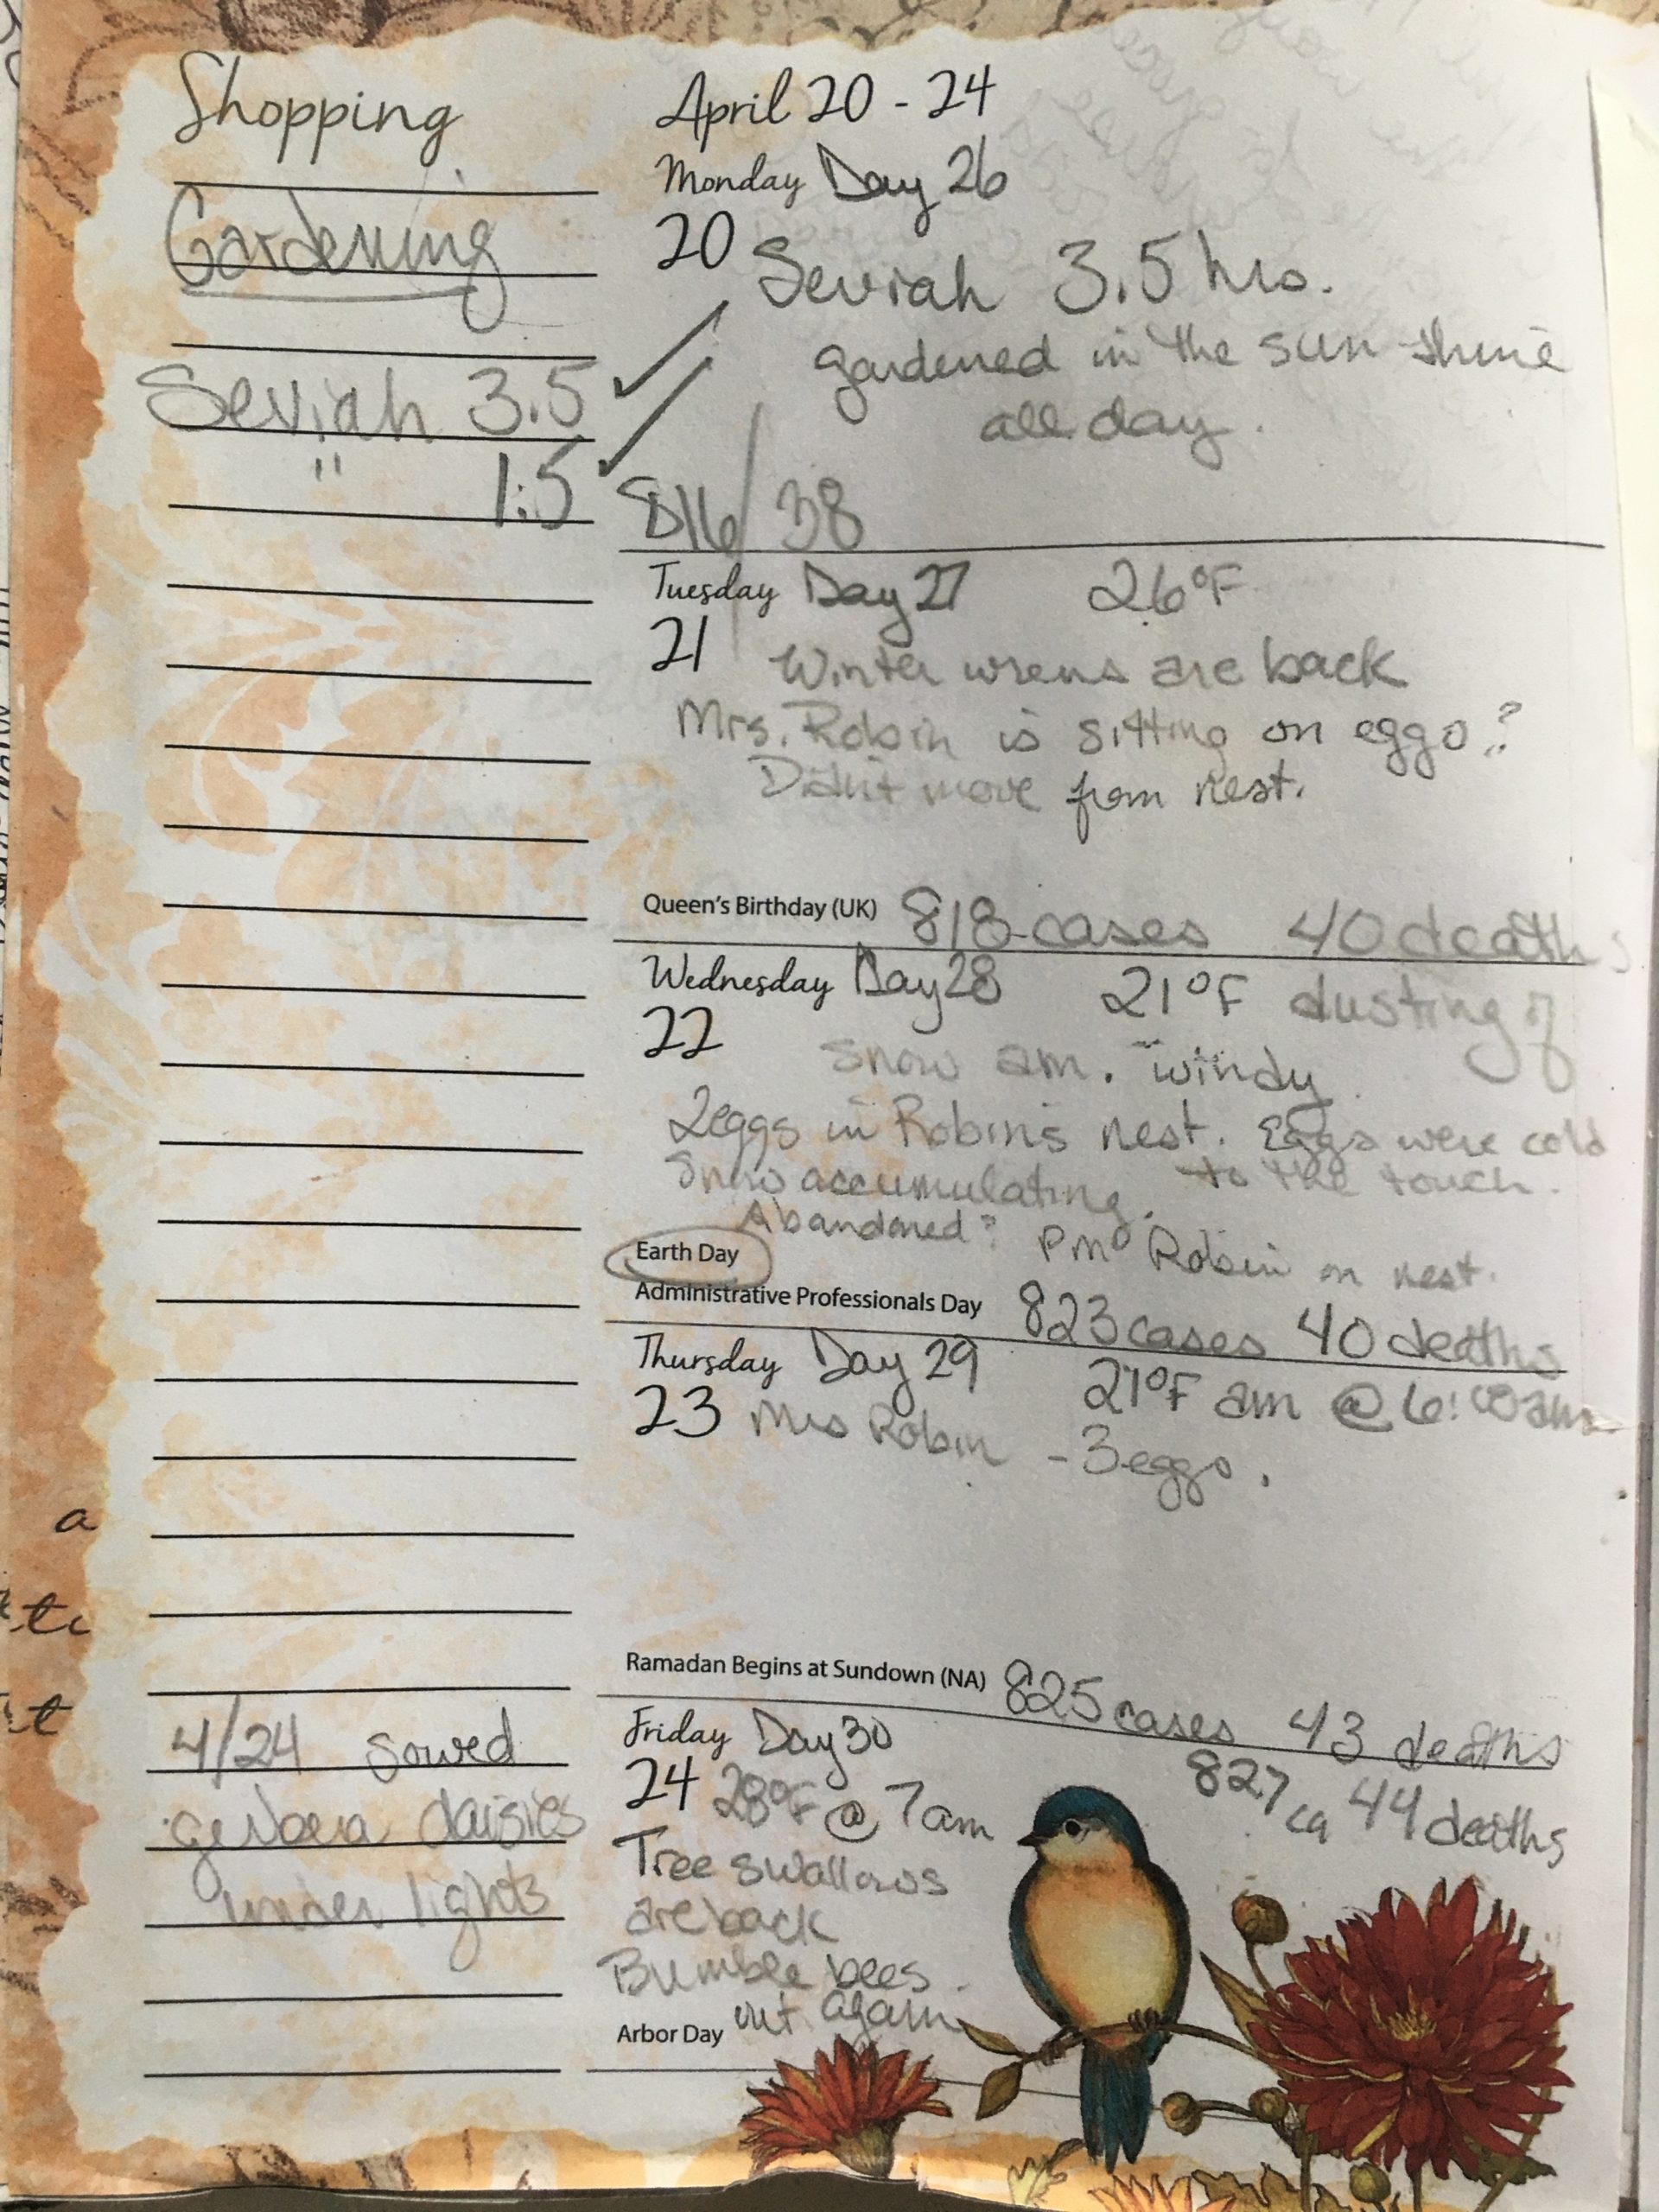 Shopping
Gardening
Seviah 3.5
" 1.5
4/24 sowed
gerbera daisies
under lights
April 20 - 24
Monday Day 26
20 Seviah 3.5 hrs.
gardened in the sun shine
all day.
816/38
Tuesday Day 27 26°F
21 Winter wrens are back
Mrs. Robin is sitting on eggs?
Didn't move from nest.
Queen's Birthday (UK) 818 cases 40 deaths
Wednesday Day 28 21°F dusting of
22 snow am. windy
2 eggs in Robin's nest. Eggs were cold
Snow accumulating. to the touch.
Abandoned? PM Robin on nest.
Earth Day
Administrative Professionals Day 823 cases 40 deaths
Thursday Day 29 21°F am @ 6:00am
23 Mrs Robin - 3 eggs.
Ramadan Begins at Sundown (NA) 825 cases 43 deaths
Friday Day 30 827 ca 44 deaths
24 28°F @ 7am
Tree swallows
are back
Bumble bees
out again
Arbor Day